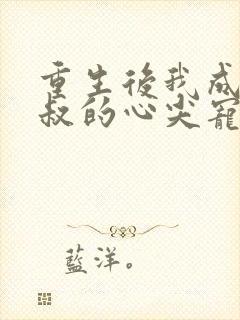 重生後我成
叔的心尖寵
藍洋。